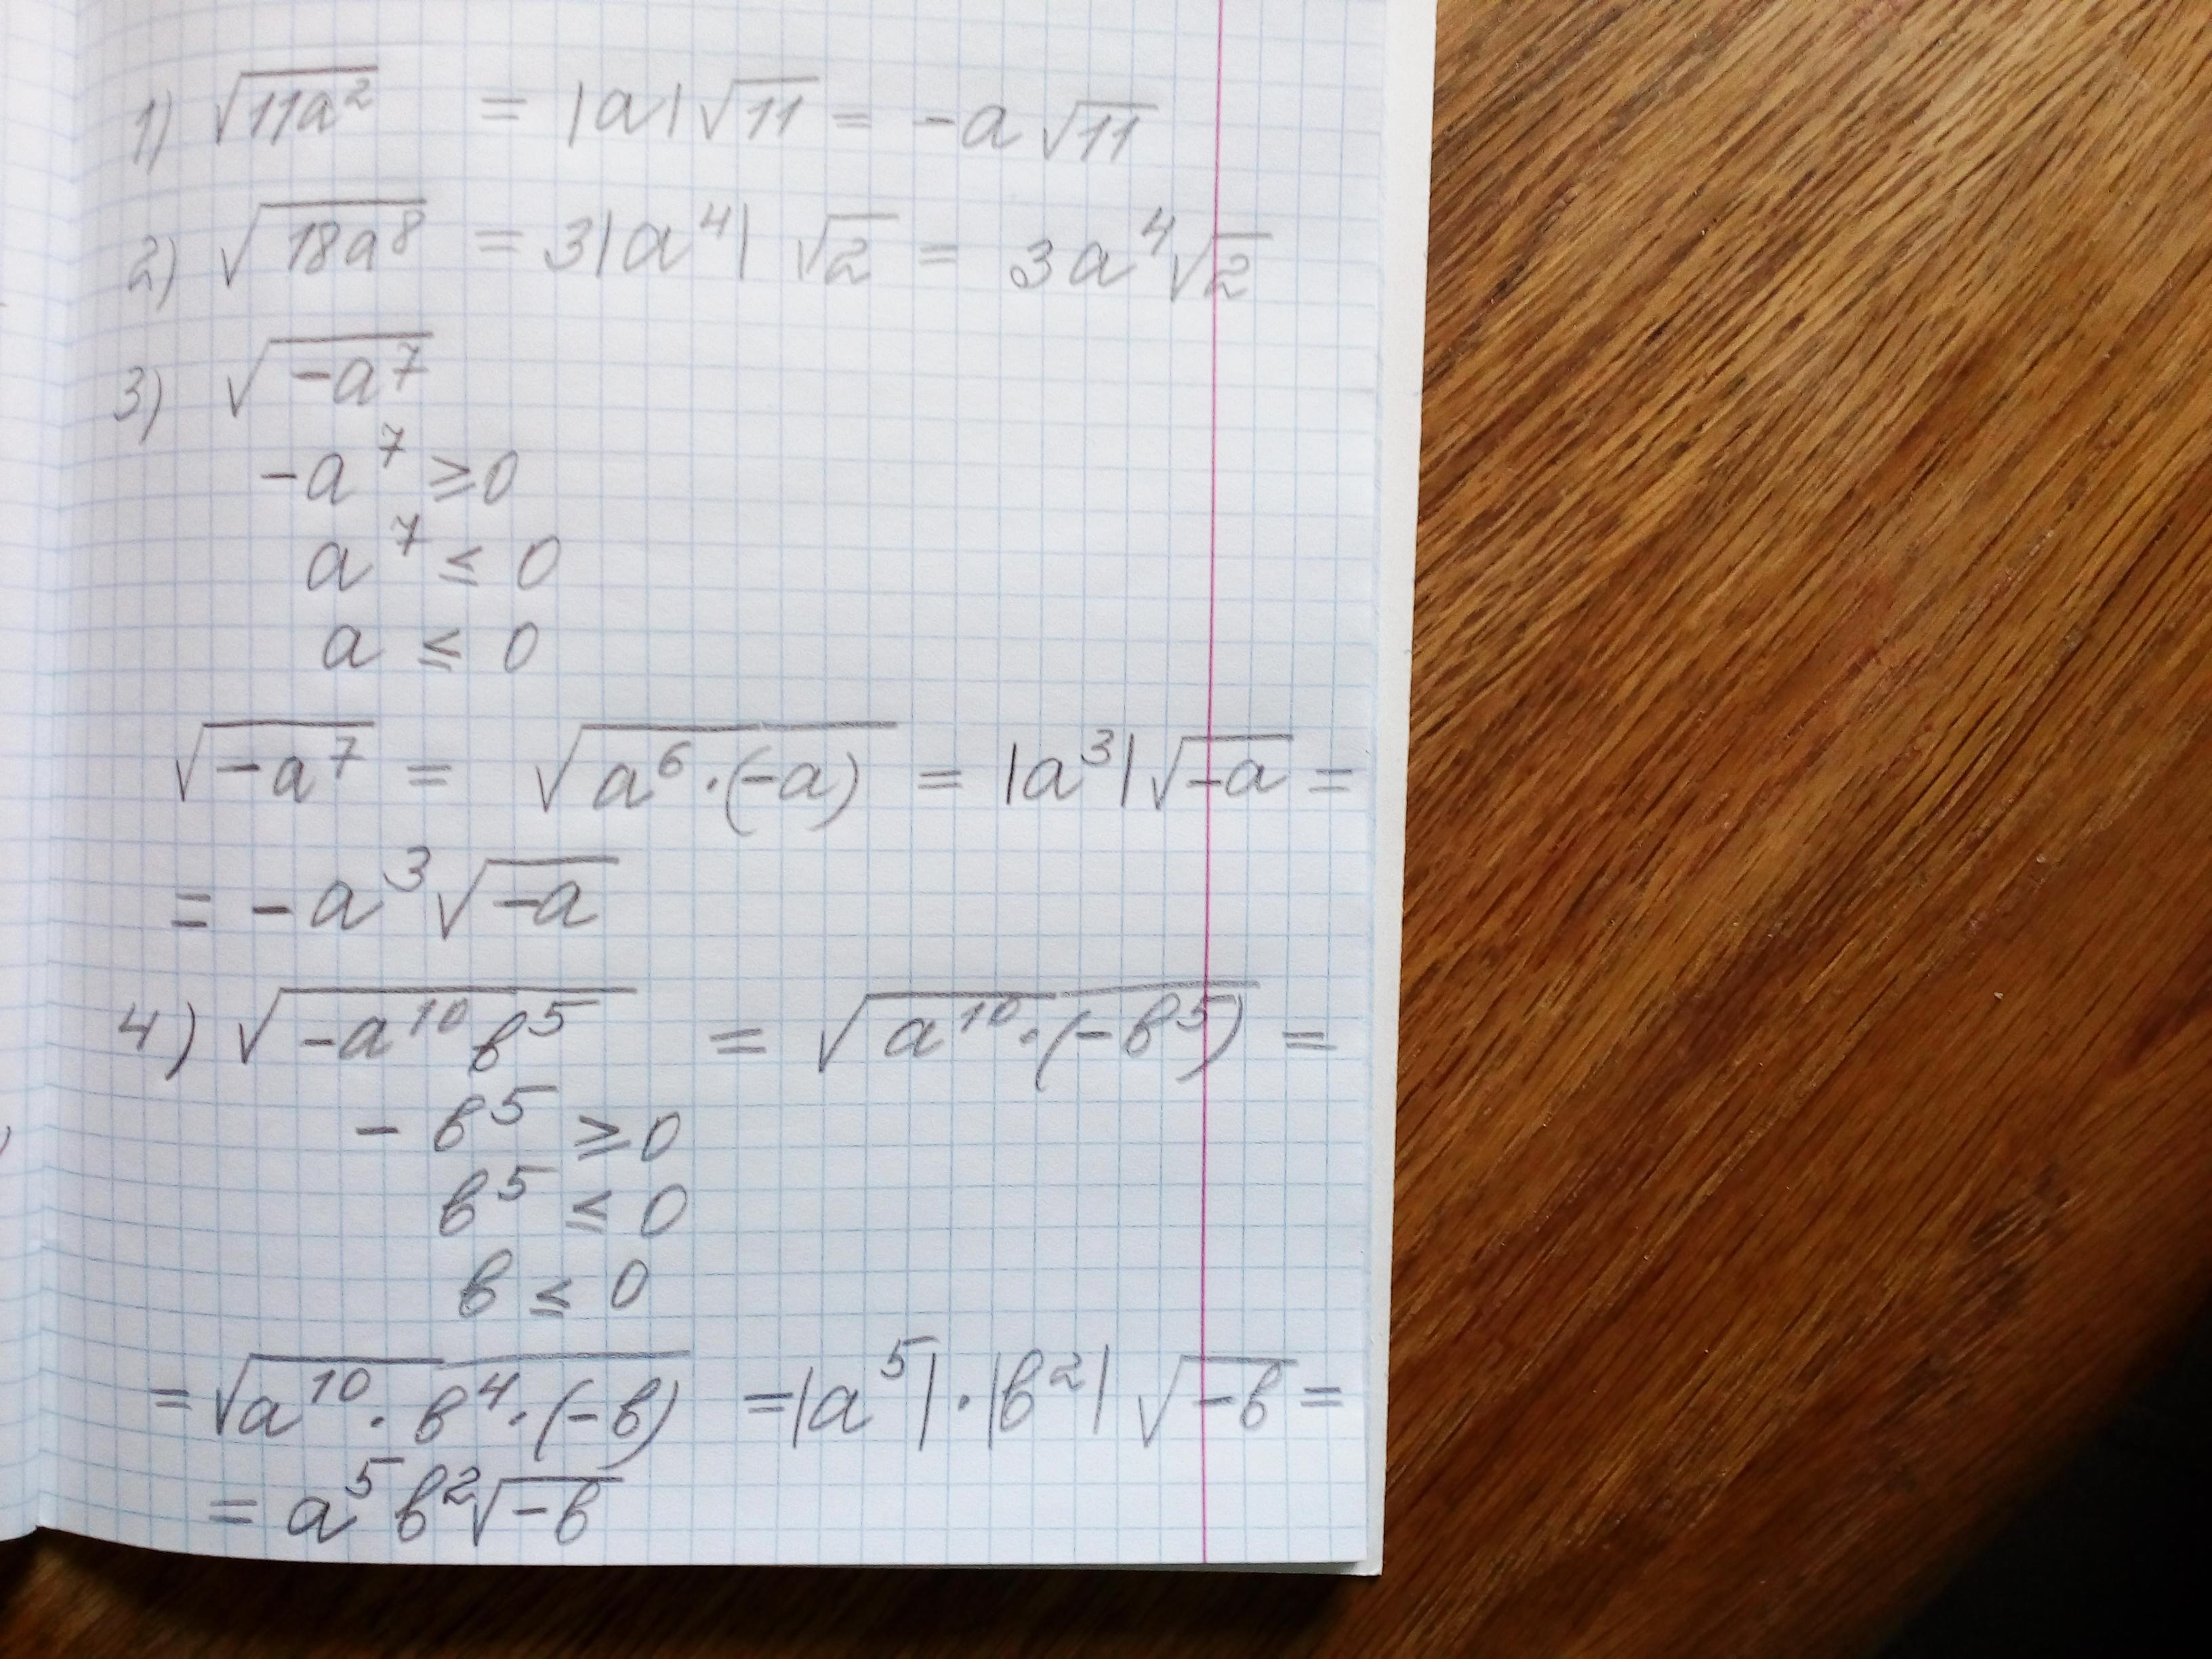 1) √(11a²) = |a|√11 = -a√11
2) √(18a⁸) = 3|a⁴| √2 = 3a⁴√2
3) √(-a⁷)
-a⁷ ≥ 0
a⁷ ≤ 0
a ≤ 0
√(-a⁷) = √(a⁶·(-a)) = |a³|√(-a) =
= -a³√(-a)
4) √(-a¹⁰в⁵) = √(a¹⁰·(-в⁵)) =
-в⁵ ≥ 0
в⁵ ≤ 0
в ≤ 0
= √(a¹⁰·в⁴·(-в)) = |a⁵|·|в²| √(-в) =
= a⁵в²√(-в)